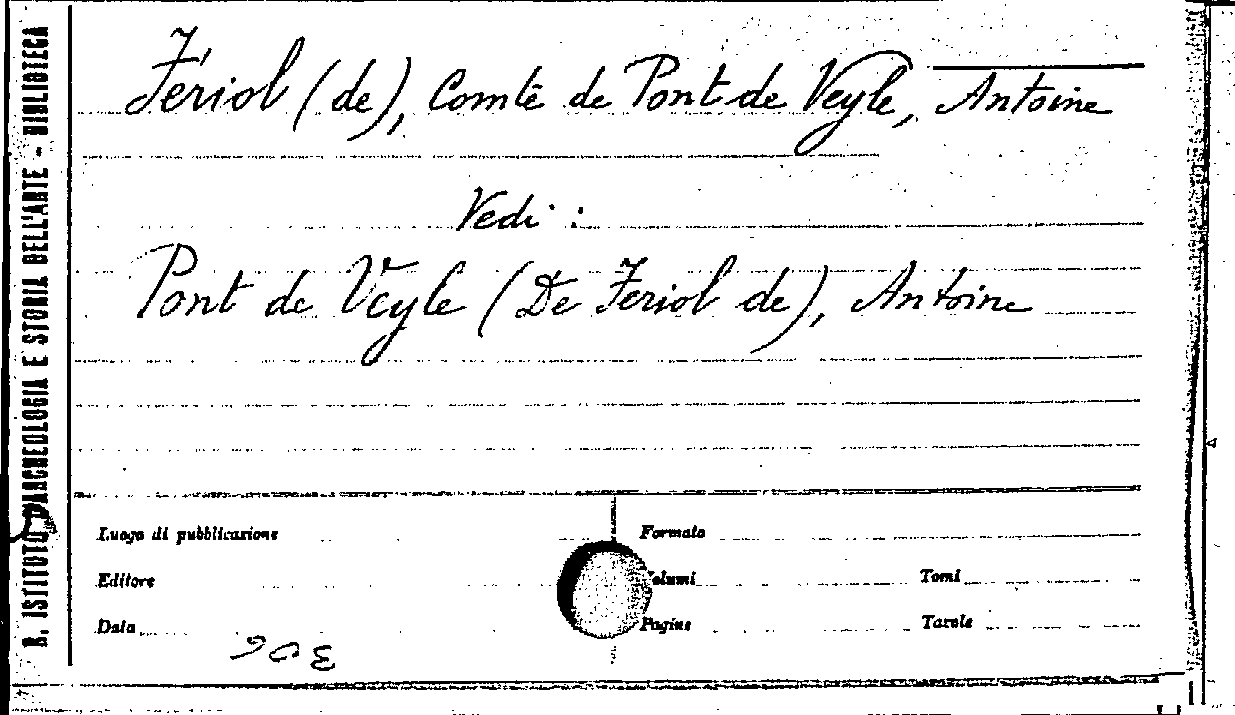 R. ISTITUTO D'ARCHEOLOGIA E STORIA DELL'ARTE - BIBLIOTECA
Fériol (de), Comte de Pont de Veyle, Antoine
Vedi :
Pont de Veyle (De Feriol de), Antoine
Luogo di pubblicazione Formato
Editore Volumi Tomi
Data Pagine Tavole